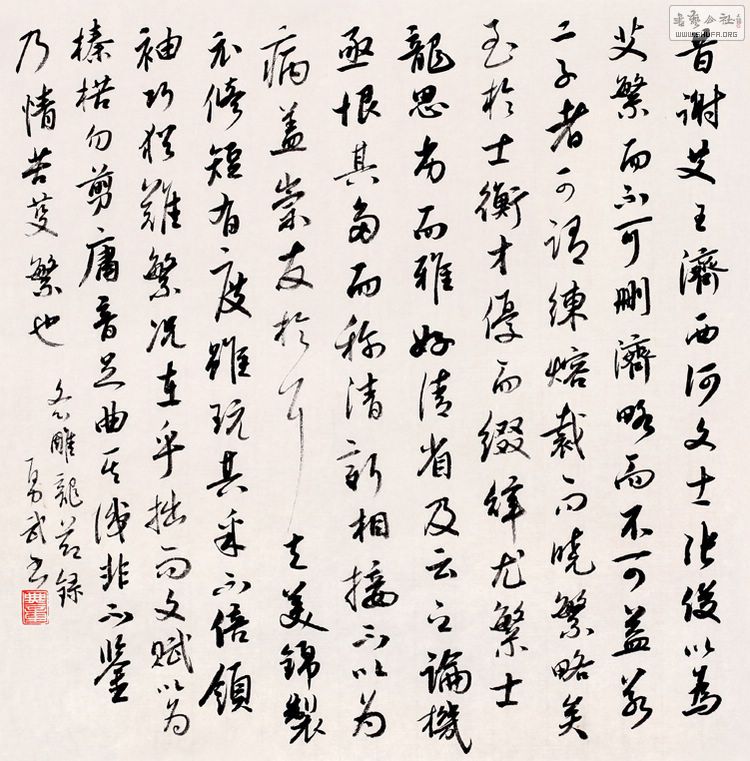 昔謝艾王濟西河文士張俊以為
艾繁而不可刪濟略而不可益若
二子者可謂練熔裁而曉繁略矣
至於士衡才優而綴辭尤繁士
龍思劣而雅好清省及云之論機
亟恨其多而称清新相接不以为
病蓋崇友於耳夫美錦製
衣脩短有度雖玩其采不倍領
袖巧猶難繁況在乎拙而文賦以为
榛楛勿剪庸音足曲其識非不鑒
乃情苦芟繁也
文心雕龍節錄
勇武書
書藝公社
WWW.SHUFA.ORG